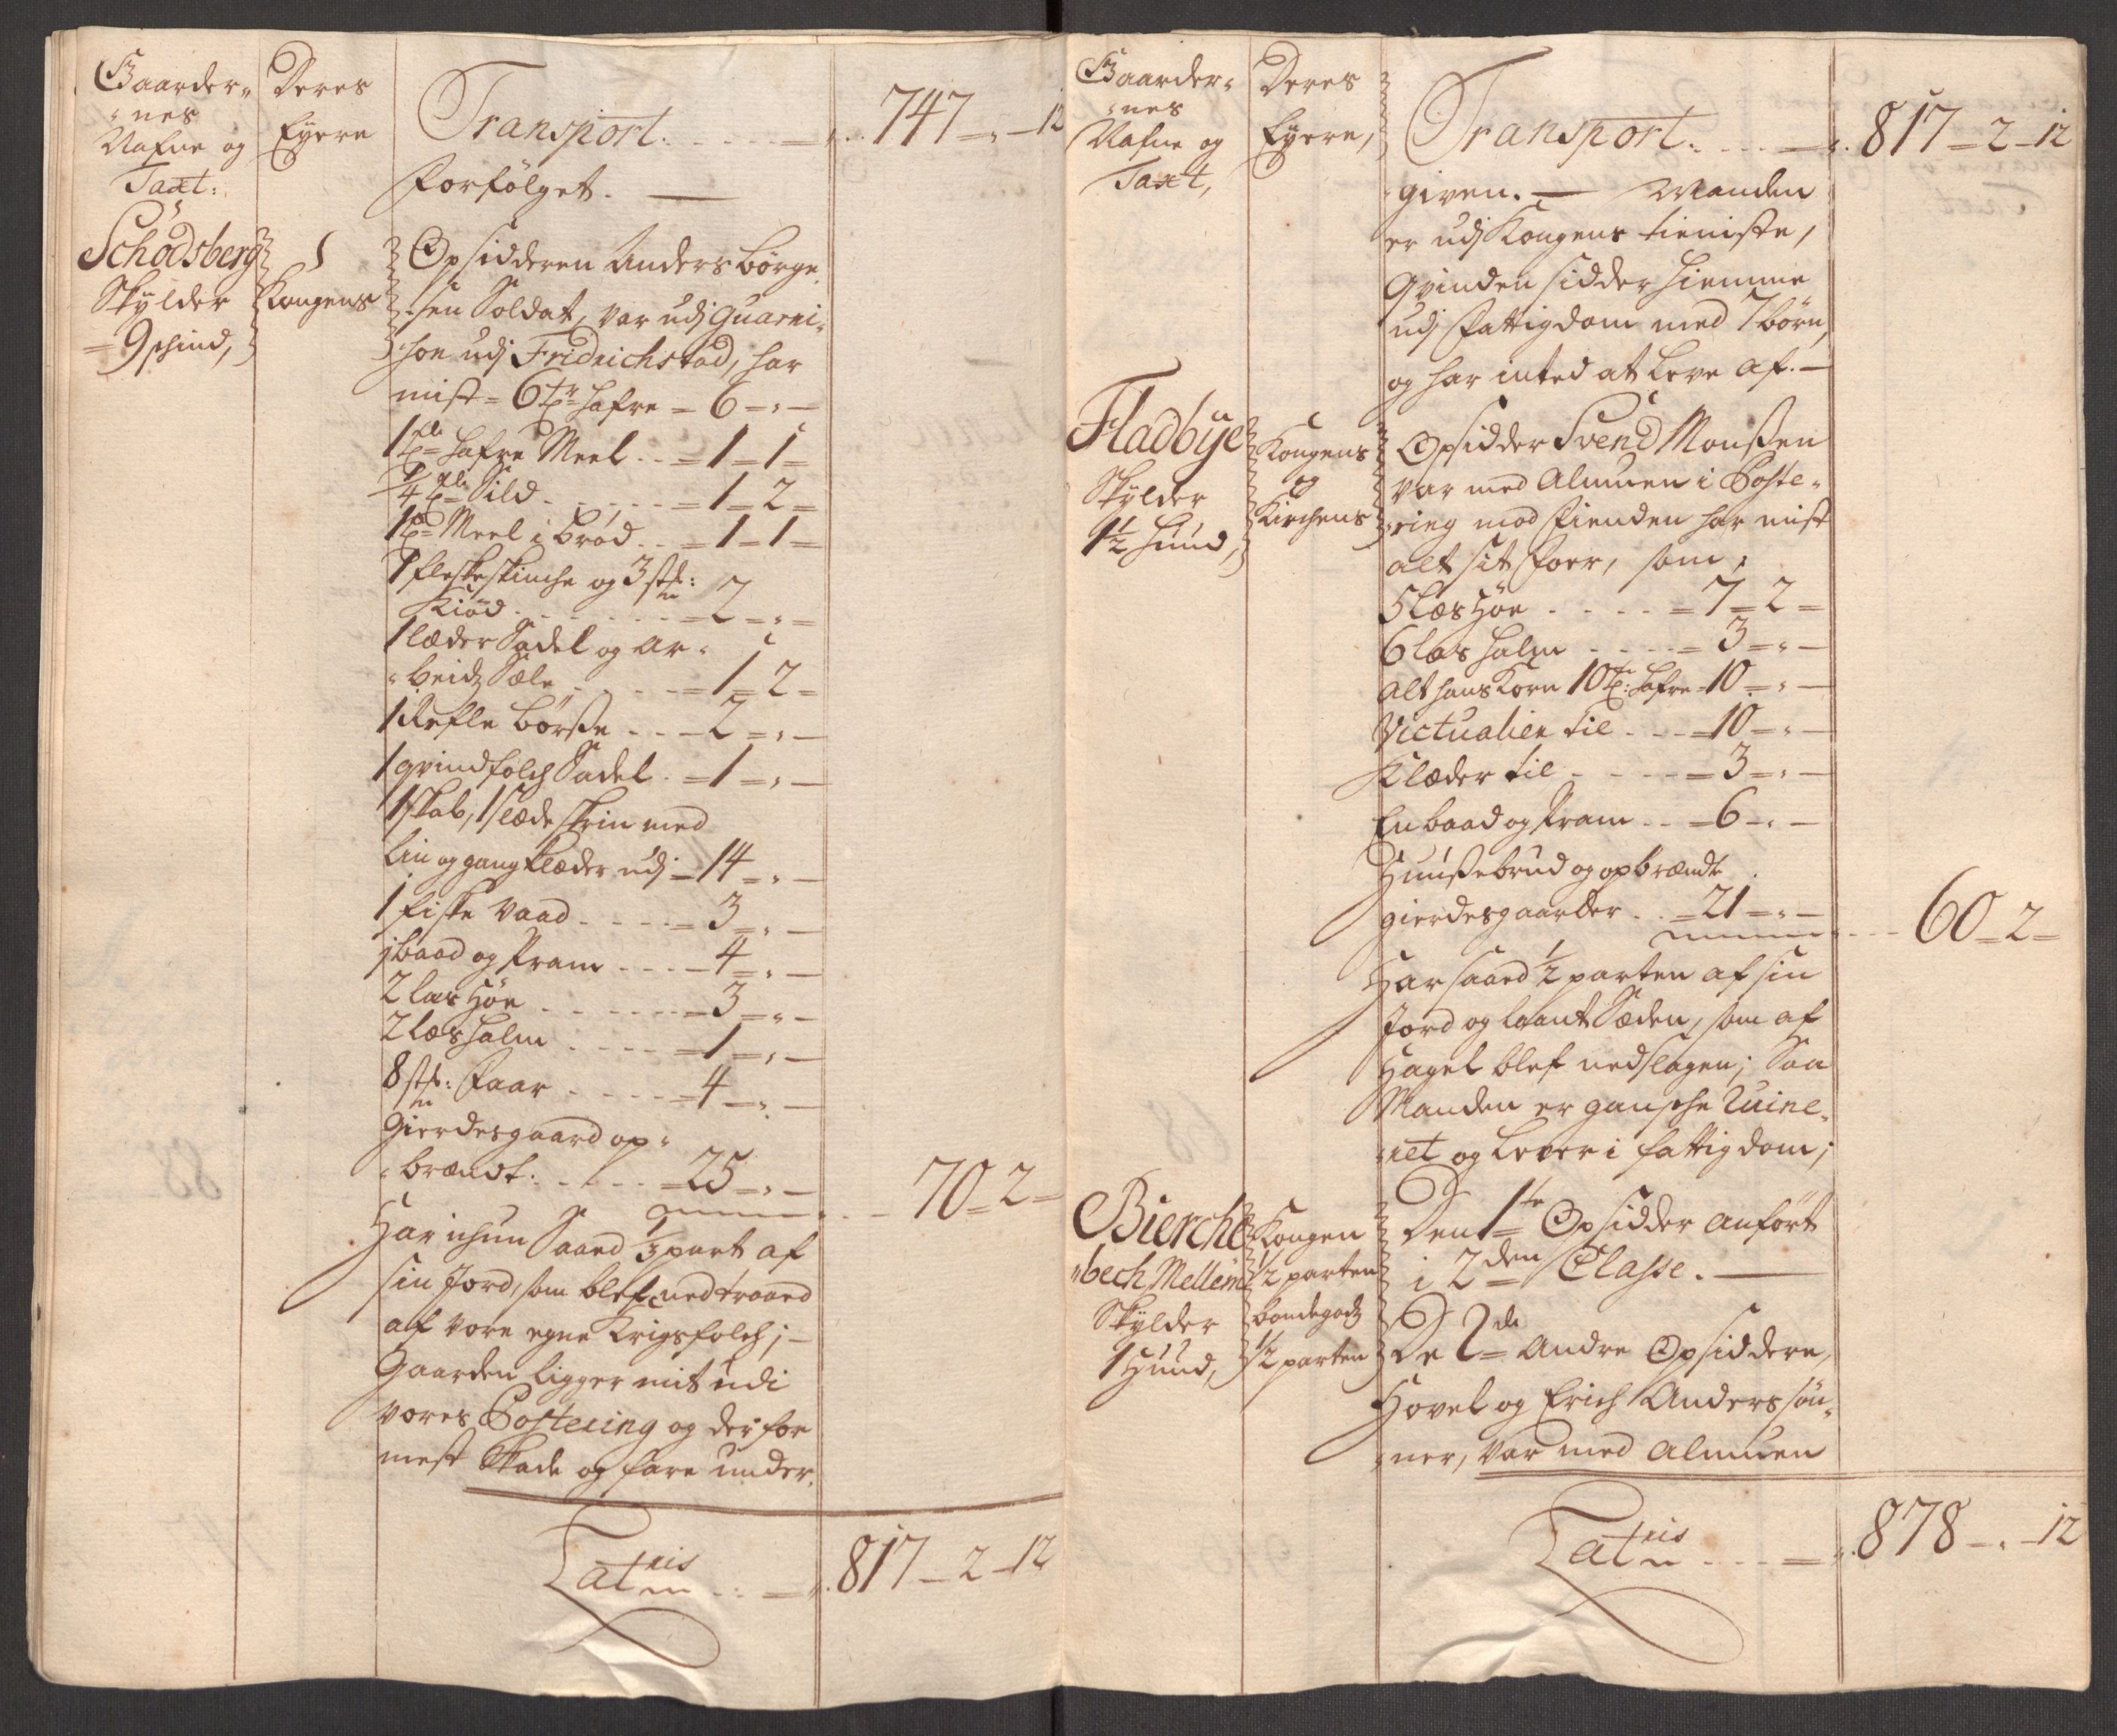 Gaarder-
-nes
Nafne og
Taxt:
Deres
Eyere
Transport. . . . . 747 - " - 12
forfölget. —
Schödsberg
Skylder
9 skind,
1
Kongens
Opsidderen Anders Börge
-sen Soldat, var udj Guarni-
-son udj Fridrichstad, har
mist - 6 tr hafre - 6 - " -
1 td hafre Meel . . - 1 - 1 -
1/4 td Sild . . . . . - 1 - 2 -
1 td Meel i bröd . . - 1 - 1 -
1 fleskeskinche og 3 stk:
Kiöd . . . . . . - 2 - " -
1 læder Sadel og ar-
-beidz Sæle . . . . - 1 - 2 -
1 Refle börsse . . . - 2 - " -
1 qvindfolch Sadel . - 1 - " -
1 skab, 1 slæde skrin med
lin og gangklæder udj - 14 - " -
1 fiske vaad . . . . - 3 - " -
1 baad og Pram . . . - 4 - " -
2 læs höe . . . . . . - 3 - " -
2 læs halm . . . . - 1 - " -
8 stk: faar . . . . - 4 - " -
Gierdesgaard op-
-brændt . . . . . - 25 - " - 70 - 2 -
Har ichun Saaed 1/3 part af
sin Jord, som blef nedtraaed
af vore egne Krigsfolch; —
Gaarden ligger mit udi
vores Postering og derfor
mest Skade og fare under.
Lateris . . . 817 - 2 - 12
Gaarder-
-nes
Nafne og
Taxt,
Deres
Eyere,
Transport. . . . 817 - 2 - 12
given. — Manden
er udj Kongens tieniste,
Qvinden sidder hiemme
udj fattigdom med 7 börn,
og har inted at leve af. —
Fladbye
Skylder
1 1/2 hund,
Kongens
og
Kirchens
Opsidder Svend Monssen
var med Almuen i Poste-
-ring mod fienden har mist
alt sit foer, som,
5 læs höe . . . . . - 7 - 2 -
6 læs halm . . . . - 3 - " -
alt hans Korn 10 tr: hafre - 10 - " -
Victualier til . . . - 10 - " -
Klæder til . . . . - 3 - " -
En baad og Pram . . - 6 - " -
Huussebrud og opbrændte
gierdesgaarder . . - 21 - " - 60 - 2 -
Har saaed 1/2 parten af sin
Jord og laant Sæden, som af
Hagel blef nedslagen; Saa
Manden er gansche Ruine-
-ret og lever i fattigdom;
Bierche
-bech Mellem
Skylder
1 Hund,
Kongen
1/2 parten
bondegodz
1/2 parten
Den 1te Opsidder anfört
i 2den Classe. —
De 2de Andre Opsiddere,
Hovel og Erich Anderssön-
-ner, var med Almuen
Lateris . . . . 878 - " - 12